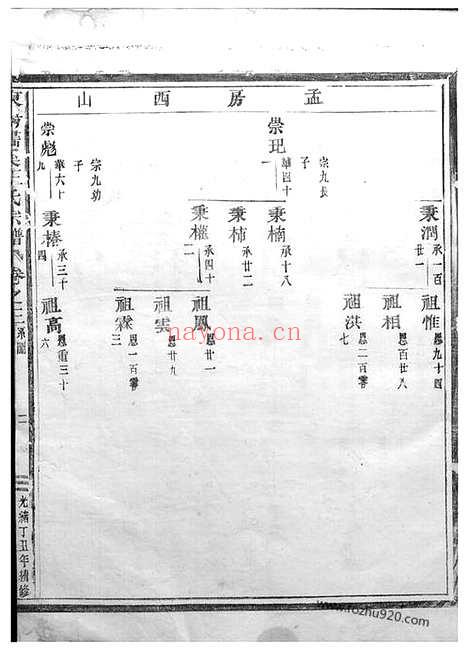 孟房西山
秉潤 承一百廿一
祖惟 恩九十四
祖相 恩百廿八
祖洪 恩二百零七
宗九長子
崇玘 華四十一
秉楠 承十八
秉柿 承廿二
秉權 承四十二
祖鳳 恩廿一
祖雲 恩廿九
祖霖 恩一百零三
宗九幼子
崇彪 華六十九
秉椿 承三千四
祖高 恩重三十六
氏宗譜 卷之三 系圖
光緒丁丑年續修
nayona.cn
www.fozhu920.com